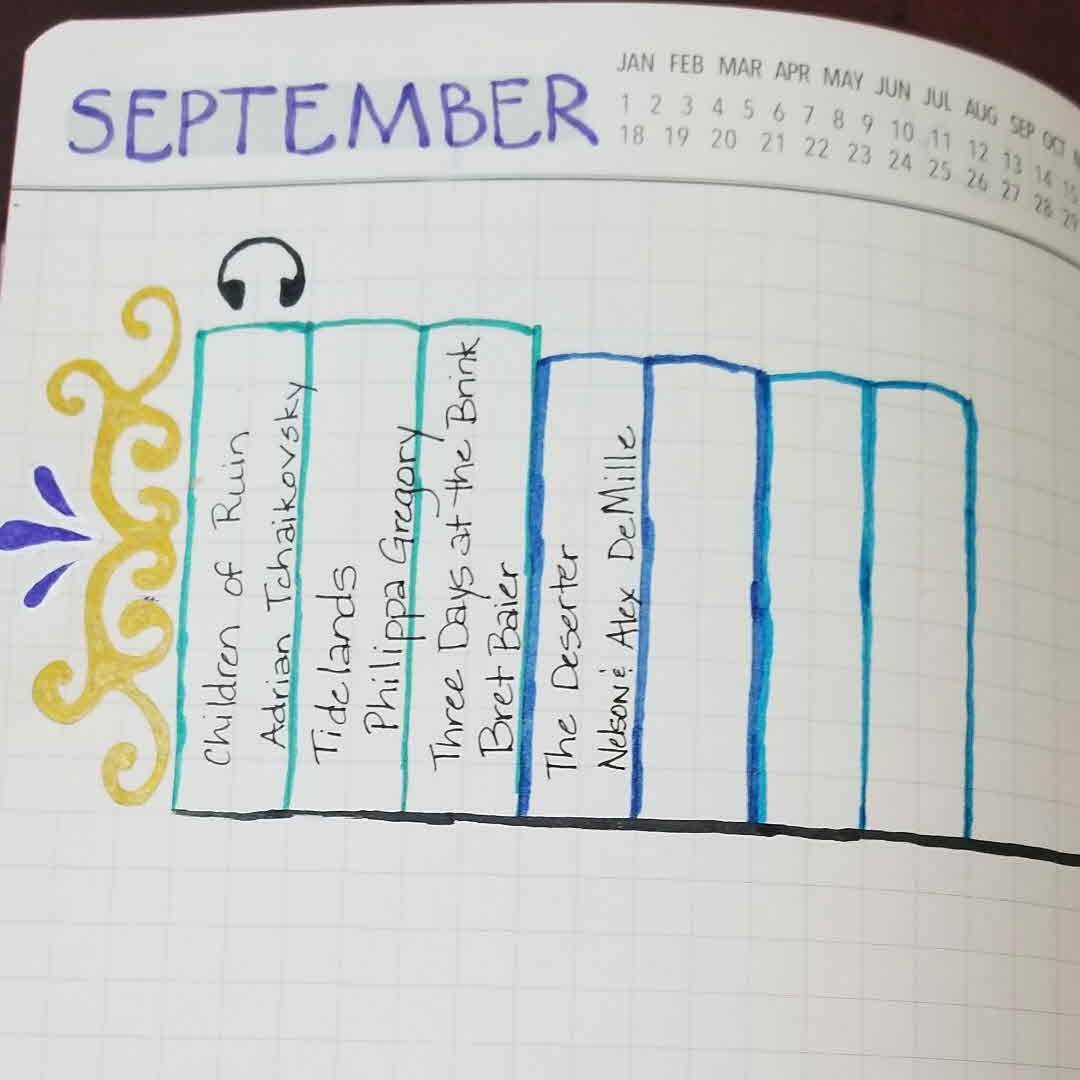 SEPTEMBER
JAN FEB MAR APR MAY JUN JUL AUG SEP OCT
1 2 3 4 5 6 7 8 9 10 11 12 13 14 15
18 19 20 21 22 23 24 25 26 27 28 29
Children of Ruin
Adrian Tchaikovsky
Tidelands
Philippa Gregory
Three Days at the Brink
Bret Baier
The Deserter
Nelson & Alex DeMille